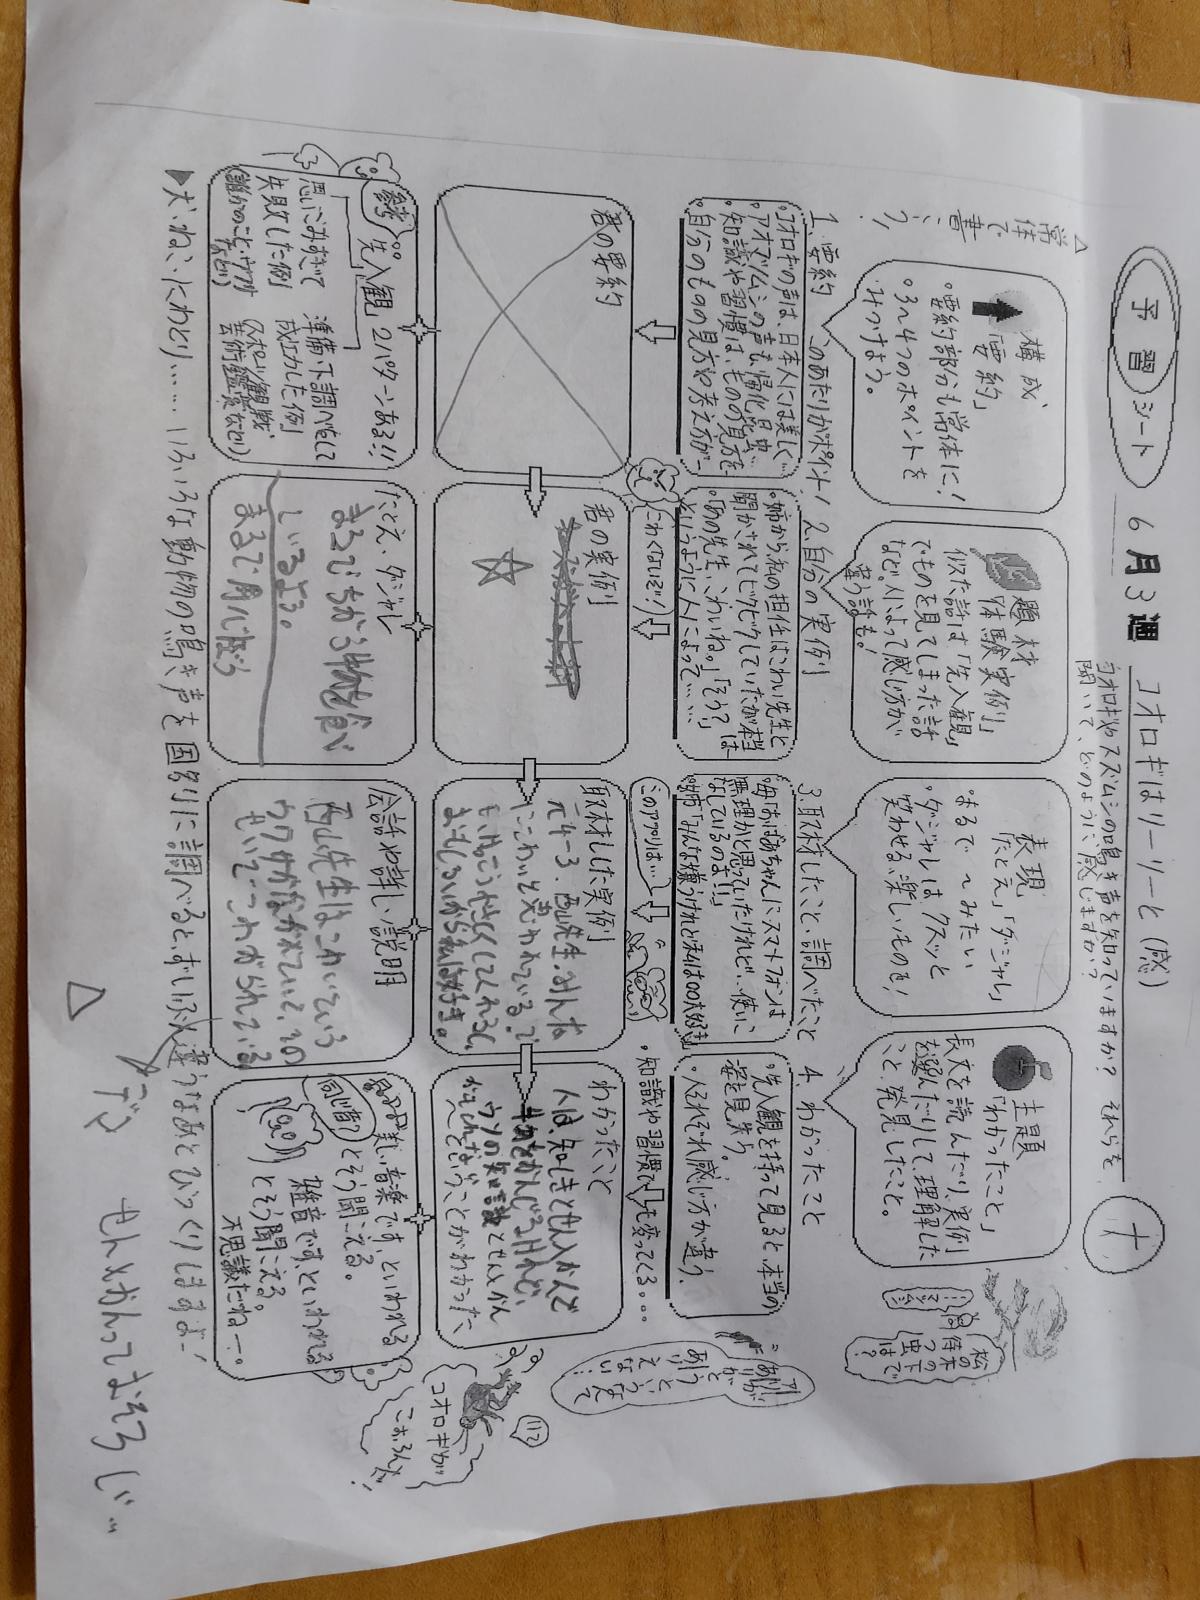 予習シート 6月3週 コオロギはリーリーと(感)
コオロギやスズムシの鳴き声を知っていますか? それらを
聞いて、どのように感じますか?
△常体で書こう!
構成
「要約」
・要約部分も常体に!
・3～4つのポイントを
みつけよう。
題材
「体験実例」
似た話は「先入観」
でものを見てしまった話
など。人によって感じ方が
違う話も!
表現
「たとえ」「ダジャレ」
・まるで〜みたい
・ダジャレはクスッと
笑わせる、楽しいものを!
主題
「わかったこと」
長文を読んだり、実例
を選んだりして、理解した
こと、発見したこと。
松の木の下で
待つ虫は?
1. 要約 このあたりがポイント!
・コオロギの声は、日本人には美しく…
・アオマツムシの声も帰化昆虫…
・知識や習慣は、ものの見方を…
・自分のものの見方や考え方が…
2. 自分の実例
・姉から、私の担任はこわい先生と
聞かされてビクビクしていたが本当は
・「あの先生、こわいね。」「そう?」
というように人によって…
こわくないぞ!
3. 取材したこと、調べたこと
・母「おばあちゃんにスマートフォンは
無理かと思っていたけれど…使いこ
なしているのよ!!」
・姉「みんな嫌うけれど私は○○大好き
このアプリは…
4. わかったこと
・先入観を持って見ると、本当の
姿を見失う。
・人それぞれ感じ方が違う。
・知識や習慣で→も変ってくる…
アリが
ありがとう
というなんて
ありえない!
君の要約
君の実例
取材した実例
元4-3、西山先生。みんな
にこわいと言われている。で
もけっこうやさしくしてくれるし、
おもしろいから私は好き。
わかったこと
人は知しきとせん入かんで
ウワの知識とせん入かん
がえこんなということがわかった
コオロギが
こおろんだ!
参考 先入観 2パターンある!!
思いこみすぎて
失敗した例
(誰かのこと、ウワサ
など)
準備や下調べをして
成功した例
(スポーツ観戦
芸術鑑賞など)
たとえ・ダジャレ
まるでちがう物を食べ
ているよう。
まるで用心ぼう
会話や詳しい説明
西山先生はこわいという
ウワサがながれていて、その
せいで…これがられている
美しい音楽です、といわれる
とそう聞こえる。
雑音です、といわれる
とそう聞こえる。
不思議だねー。
同じ音?
▶犬、ねこ、にわとり…… いろいろな動物の鳴き声を国別に調べると、ずいぶん違うなあとびっくりしますよ!
△
せんめんってまそうじ…